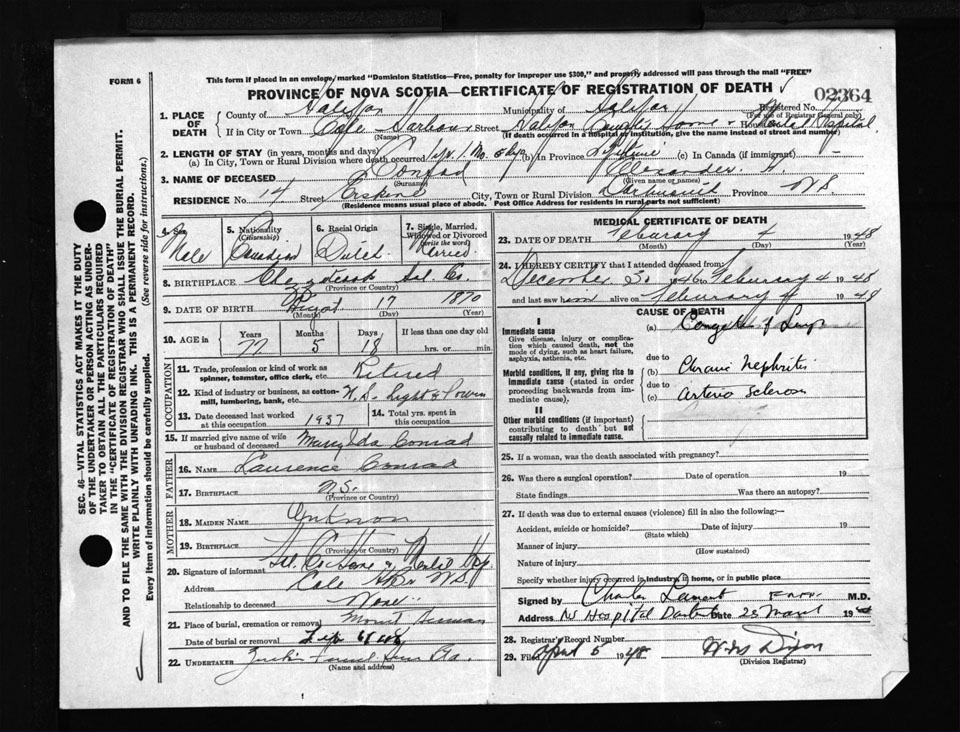 FORM 6
This form if placed in an envelope marked "Dominion Statistics—Free, penalty for improper use $300," and properly addressed will pass through the mail "FREE"
PROVINCE OF NOVA SCOTIA—CERTIFICATE OF REGISTRATION OF DEATH
02364
1. PLACE OF DEATH
County of Halifax Municipality of Halifax Registered No.
(For use of Registrar General only)
If in City or Town Cole Harbour Street Halifax County Home & Mental Hospital
(Name) (If death occurred in a hospital or institution, give the name instead of street and number)
2. LENGTH OF STAY (in years, months and days)
(a) In City, Town or Rural Division where death occurred 1 yr. 1 Mo. 5 (b) in Province Lifetime (c) In Canada (if immigrant)
3. NAME OF DECEASED Conrad
(Surname) (Given name or names)
RESIDENCE No. 14 Street Erskine City, Town or Rural Division Dartmouth Province NS
(Residence means usual place of abode. Post Office Address for residents in rural parts not sufficient)
4. Sex
Male
5. Nationality
(Citizenship)
Canadian
6. Racial Origin
Dutch
7. Single, Married, Widowed or Divorced
(write the word)
8. BIRTHPLACE Chezzetcook Hal. Co.
(Province or Country)
9. DATE OF BIRTH 17 1870
(Month) (Day) (Year)
10. AGE in
Years 77
Months 5
Days 18
If less than one day old
hrs. or min.
OCCUPATION
11. Trade, profession or kind of work as spinner, teamster, office clerk, etc. Retired
12. Kind of industry or business, as cotton-mill, lumbering, bank, etc. N.S. Light & Power
13. Date deceased last worked at this occupation 1937
14. Total yrs. spent in this occupation
15. If married give name of wife or husband of deceased Mary Ida Conrad
FATHER
16. NAME Laurence Conrad
17. BIRTHPLACE N.S.
(Province or Country)
MOTHER
18. MAIDEN NAME Unknown
19. BIRTHPLACE
(Province or Country)
20. Signature of informant Hal. Co. Home & Mental Hosp
Address Cole Hbr N.S.
Relationship to deceased None
21. Place of burial, cremation or removal Mount Herman
Date of burial or removal
22. UNDERTAKER
(Name and address)
MEDICAL CERTIFICATE OF DEATH
23. DATE OF DEATH February 4 1948
(Month) (Day) (Year)
24. I HEREBY CERTIFY that I attended deceased from:
December 30 1946 to February 4 1948
and last saw him alive on February 4 1948
CAUSE OF DEATH
I
Immediate cause
Give disease, injury or complication which caused death, not the mode of dying, such as heart failure, asphyxia, asthenia, etc.
(a) Congestion of Lungs
due to
Morbid conditions, if any, giving rise to immediate cause (stated in order proceeding backwards from immediate cause).
(b) Chronic Nephritis
due to
(c) Arterio Sclerosis
II
Other morbid conditions (if important) contributing to death but not causally related to immediate cause.
25. If a woman, was the death associated with pregnancy?
26. Was there a surgical operation? Date of operation 19
State findings Was there an autopsy?
27. If death was due to external causes (violence) fill in also the following:—
Accident, suicide or homicide? Date of injury 19
(State which)
Manner of injury
(How sustained)
Nature of injury
Specify whether injury occurred in industry, in home, or in public place
Signed by Charles Lamont M.D.
Address NS Hospital Date 23 March 19
28. Registrar's Record Number
29. Filed April 5 1948 Dixon
(Division Registrar)
SEC. 46—VITAL STATISTICS ACT MAKES IT THE DUTY
OF THE UNDERTAKER OR PERSON ACTING AS UNDER-
TAKER TO OBTAIN ALL THE PARTICULARS REQUIRED
IN THE "CERTIFICATE OF REGISTRATION OF DEATH"
AND TO FILE THE SAME WITH THE DIVISION REGISTRAR WHO SHALL ISSUE THE BURIAL PERMIT.
WRITE PLAINLY WITH UNFADING INK. THIS IS A PERMANENT RECORD.
Every item of information should be carefully supplied. (See reverse side for instructions.)